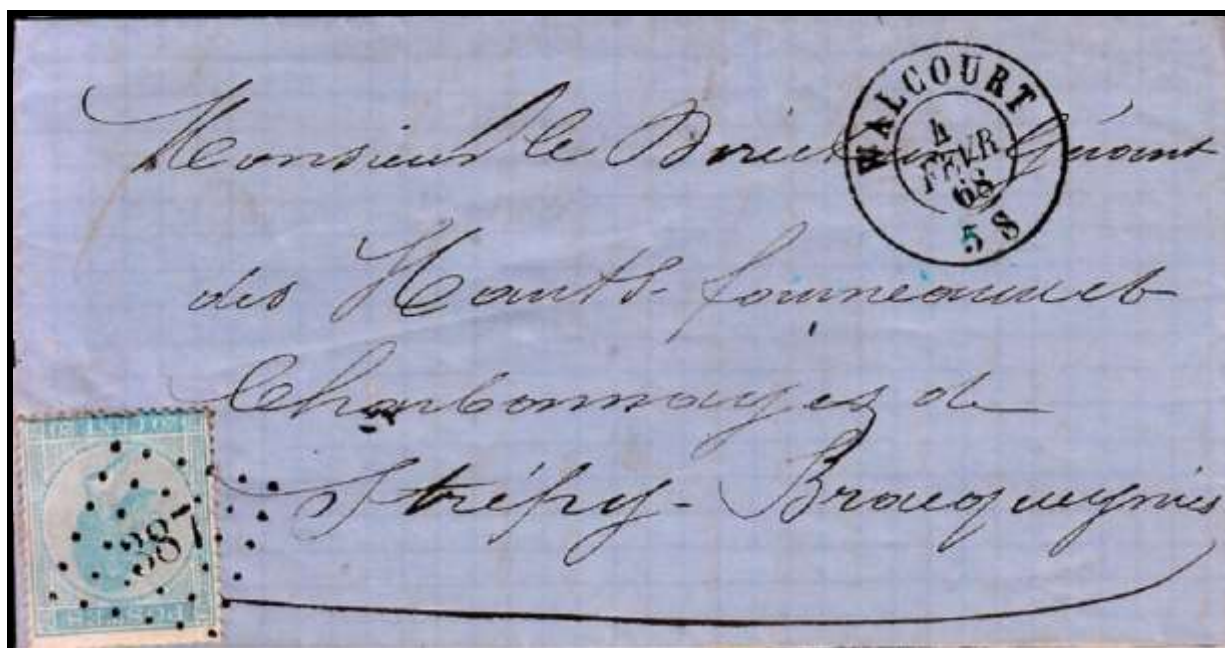 Monsieur le Directeur Gérant
des Hauts-fourneaux et
Charbonnages de
Strépy-Bracquegnies
WALCOURT
4
FEVR
68
5 S
387
POSTES
20 CENT 20